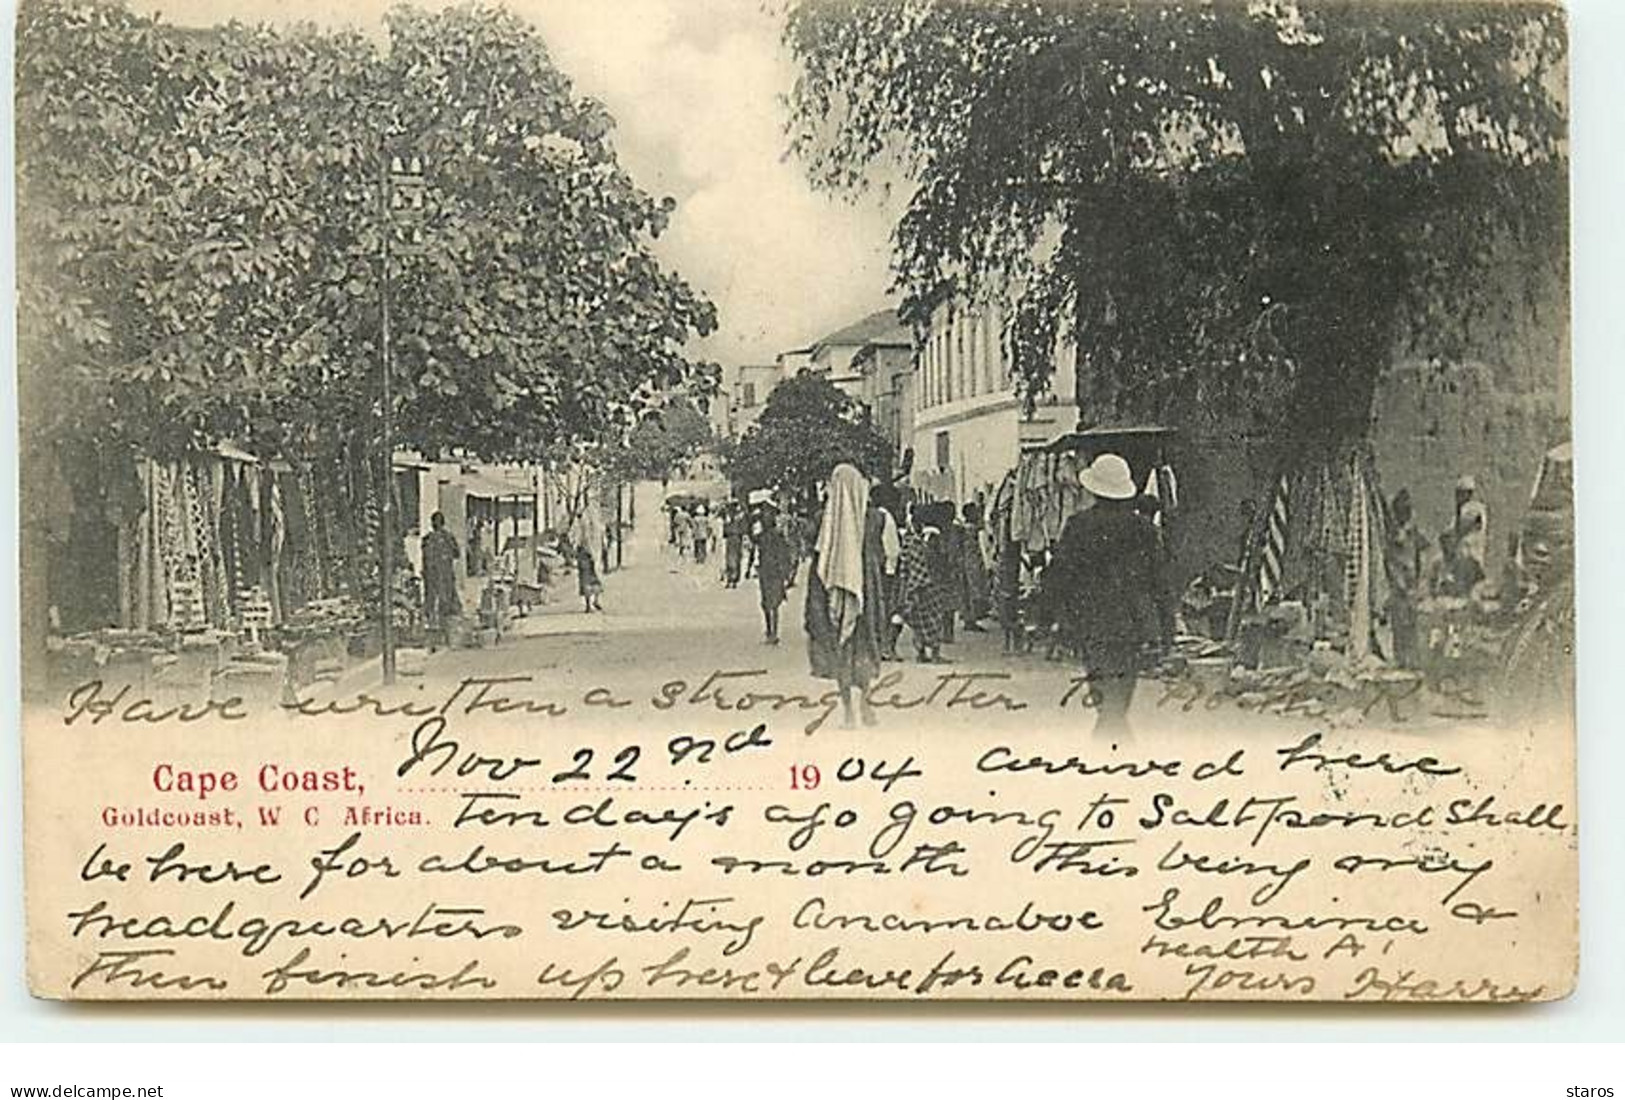 Have written a strong letter to North R
Cape Coast, Nov 22nd 1904 arrived here
Goldcoast, W C Africa. Ten days ago going to Saltpond Shall
be here for about a month This being my
headquarters visiting Anamaboe Elmina &
Then finish up here & leave for Accra
Health A1
Yours Harry
www.delcampe.net
staros